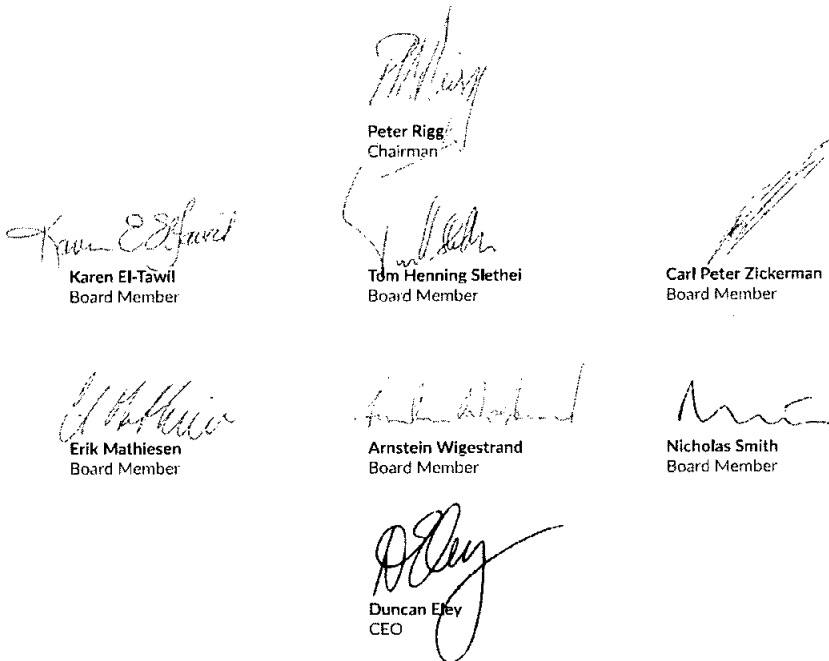 Peter Rigg
Chairman
Karen El-Tawil
Karen El-Tawil
Board Member
Tom Henning Slethei
Board Member
Carl Peter Zickerman
Board Member
Erik Mathiesen
Board Member
Arnstein Wigestrand
Arnstein Wigestrand
Board Member
Nicholas Smith
Board Member
DEley
Duncan Eley
CEO